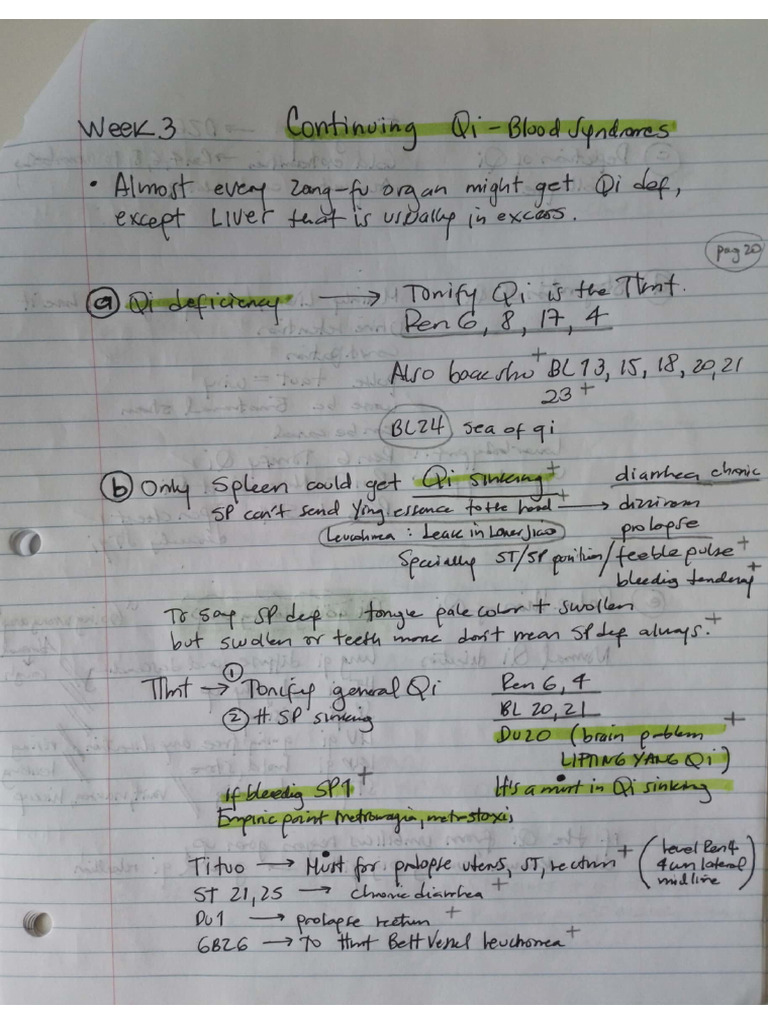 Week 3 Continuing Qi-Blood Syndromes
• Almost every Zang-fu organ might get Qi def,
except Liver that is usually in excess.
pag 20
ⓐ Qi deficiency → Tonify Qi is the Ttmt.
Ren 6, 8, 17, 4
Also back shu + BL 13, 15, 18, 20, 21
23 +
BL24 sea of qi
ⓑ Only Spleen could get Qi sinking + diarrhea chronic
SP can't send Ying essence to the head + → dizziness
Leucohrrea: Leake in Lower Jiao prolapse
Specially ST/SP position/feeble pulse +
bleeding tendency +
To say SP def tongue pale color + swollen
but swollen or teeth more don't mean SP def always. +
Ttmt → ① Tonify general Qi Ren 6, 4
② tt. SP sinking BL 20, 21
DU20 (brain problem +
LIFTING YANG Qi)
If bleedig SP1 + It's a must in Qi sinking
Empiric point metrorragia, met-staxis
Tituo → Must for prolapse uterus, ST, rectum + (level Ren 4
4 cun lateral
midline)
ST 21, 25 → chronic diarrhea +
DU1 → prolapse rectum +
GB26 → To ttmt Belt Vessel leuchorrea +